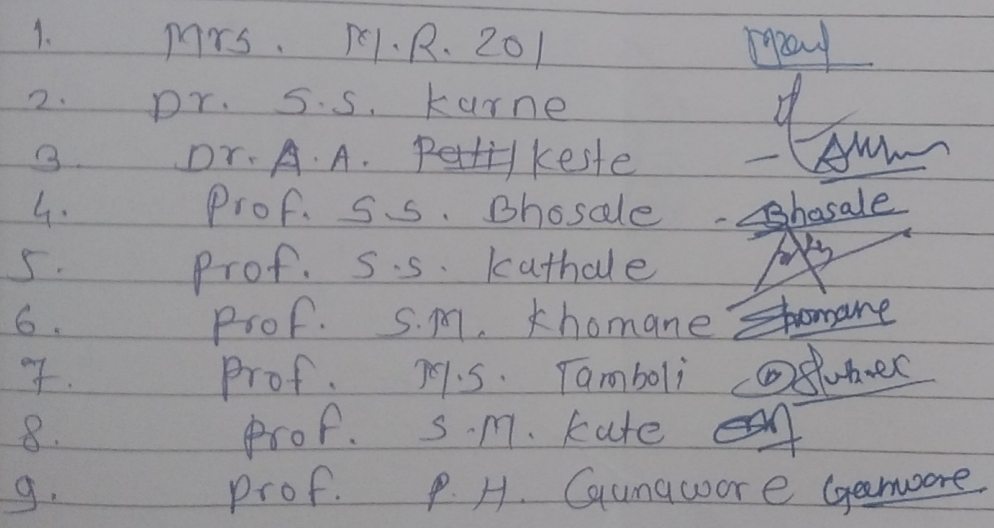 1. Mrs. M.R. 201
2. Dr. S.S. Karne
3. Dr. A.A. Keste
4. Prof. S.S. Bhosale - Bhosale
5. Prof. S.S. Kathale
6. Prof. S.M. Khomane Khomane
7. Prof. M.S. Tamboli
8. Prof. S.M. Kate
9. Prof. P.H. Gaunaware